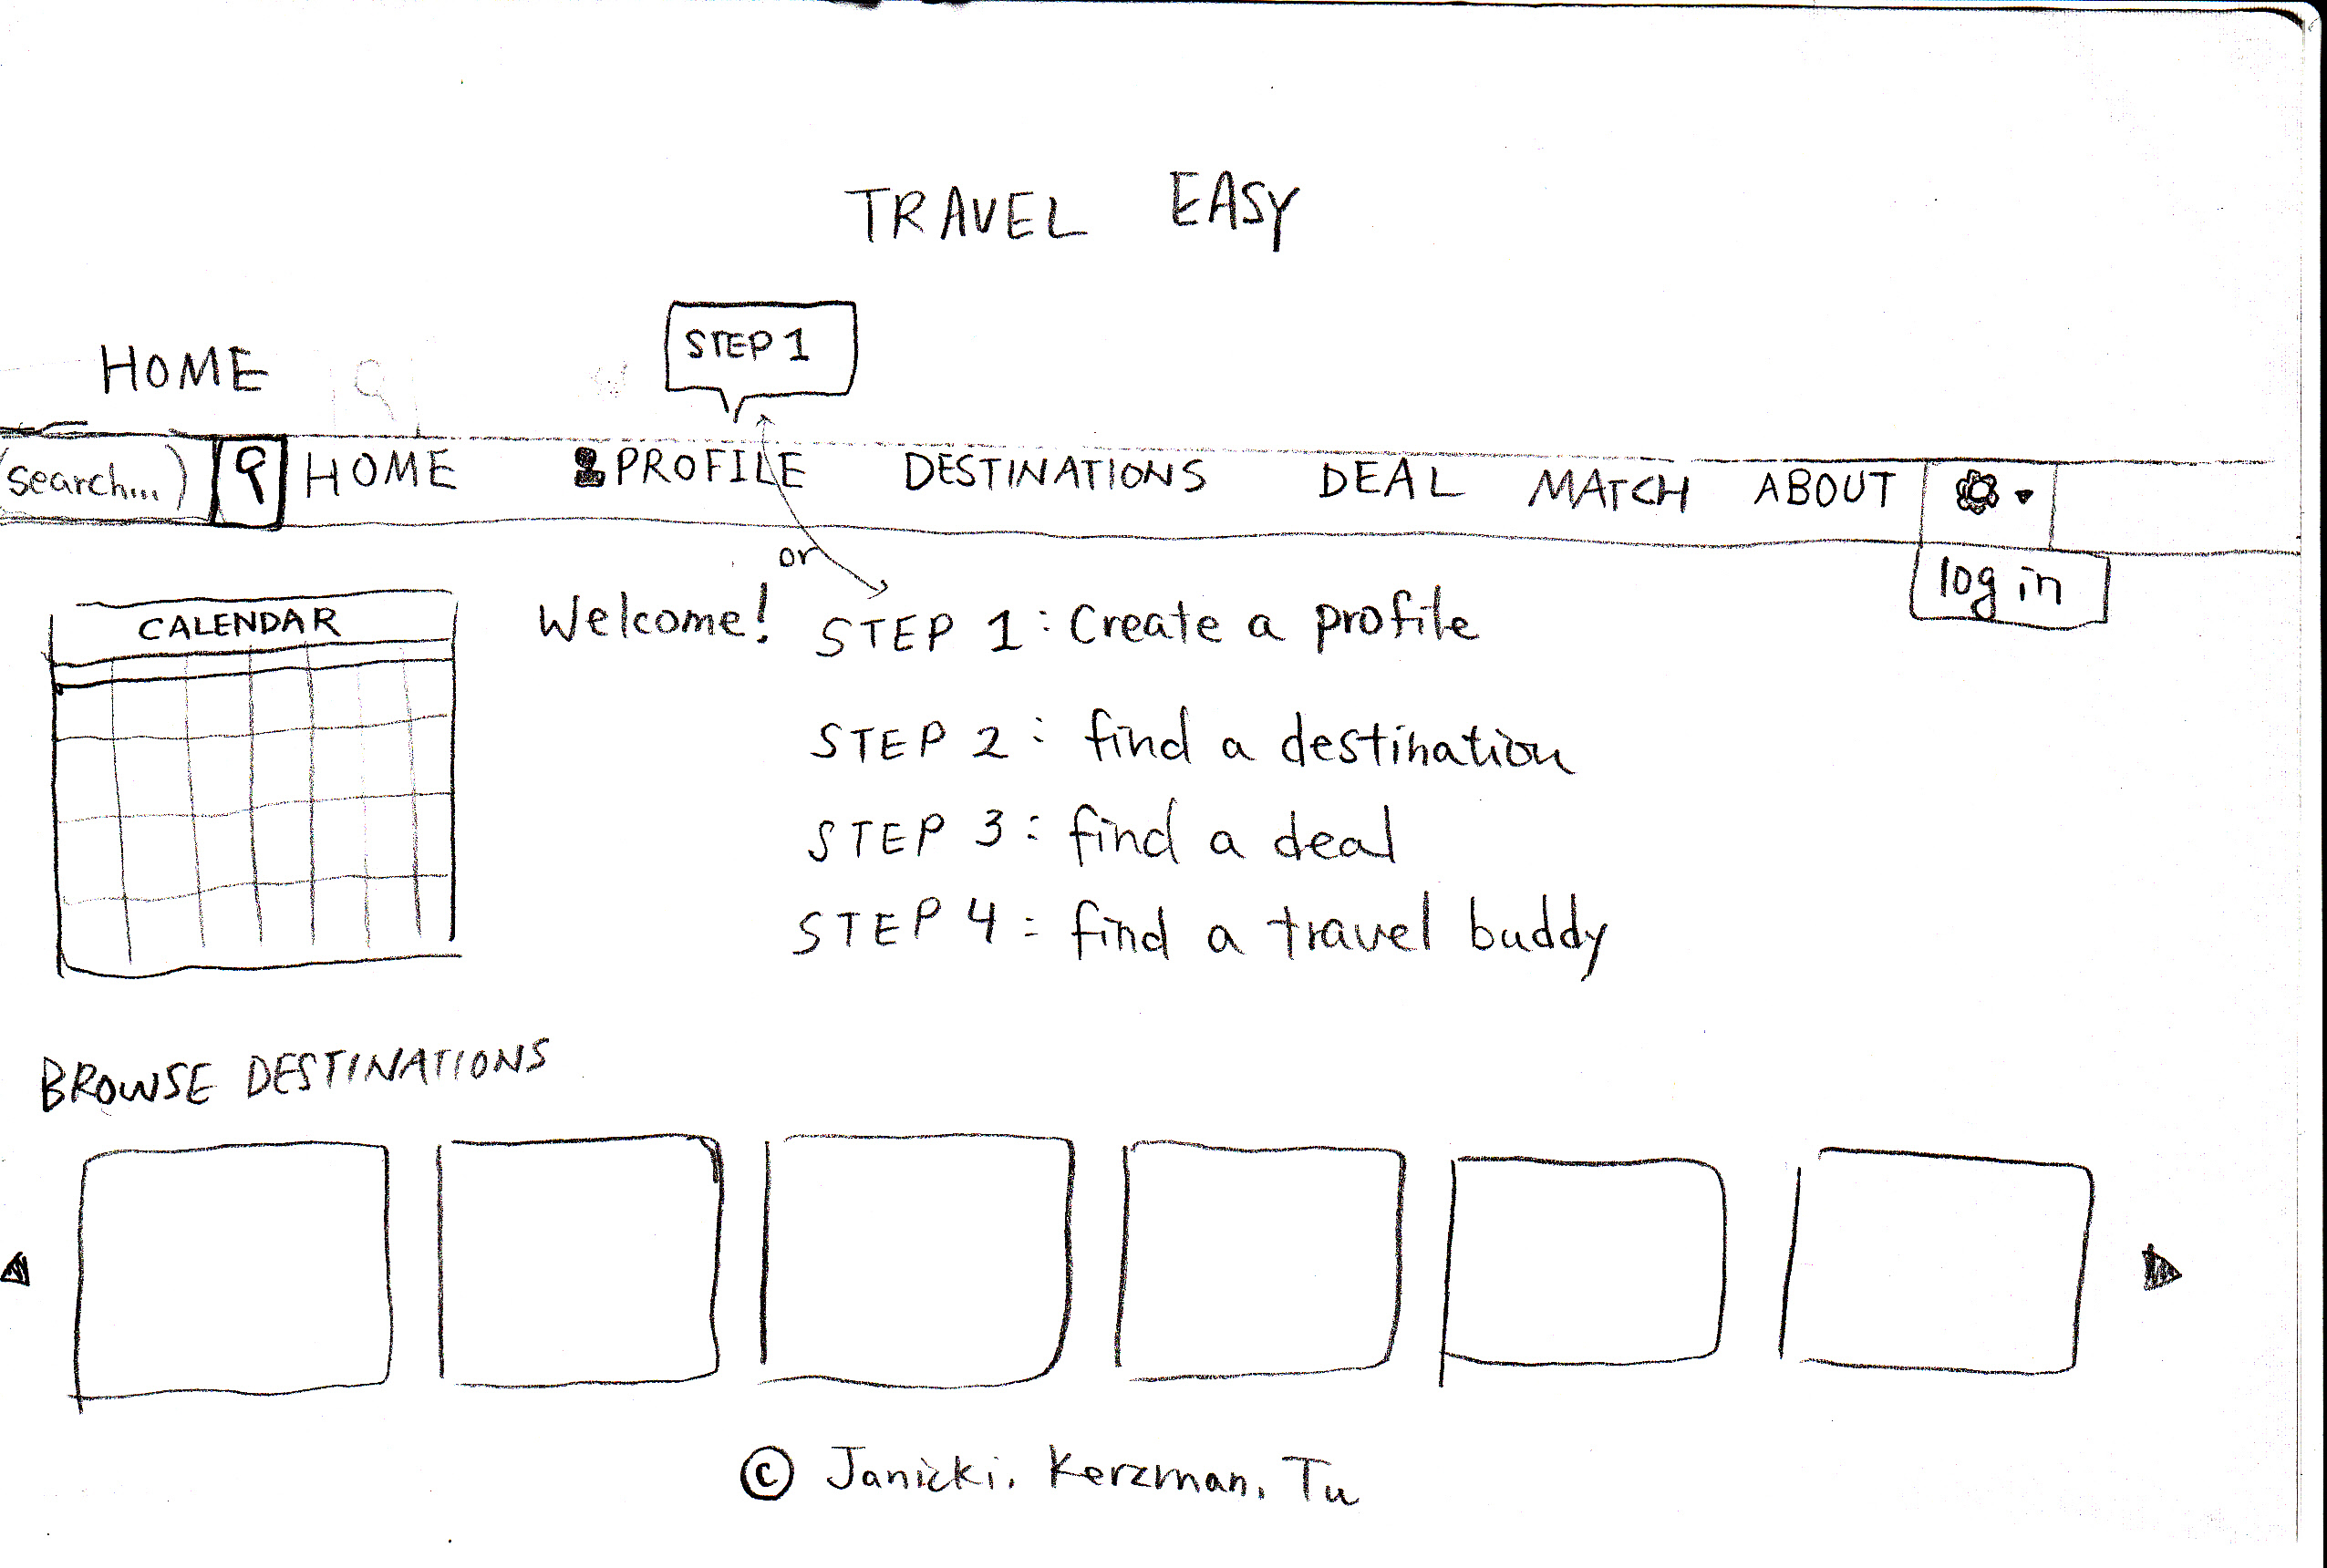 TRAVEL EASY
STEP 1
HOME
search... HOME PROFILE DESTINATIONS DEAL MATCH ABOUT
or
log in
CALENDAR
Welcome! STEP 1: Create a profile
STEP 2: find a destination
STEP 3: find a deal
STEP 4: find a travel buddy
BROWSE DESTINATIONS
© Janicki, Kerzman, Tu